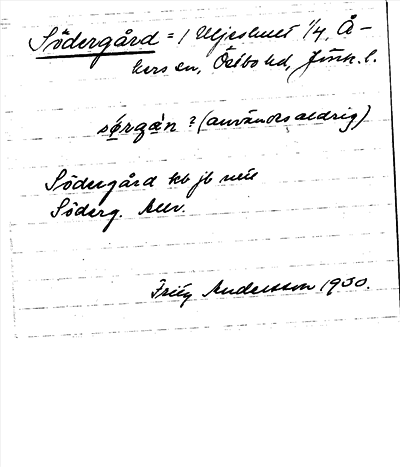 Södergård = 1 Uljeshult 1/4, Å-
kers sn, Östbo hd, Jönk. l.
sø̱rgà̱n ? (användes aldrig)
Södergård kb jb
Söderg.
Andersson 1930.